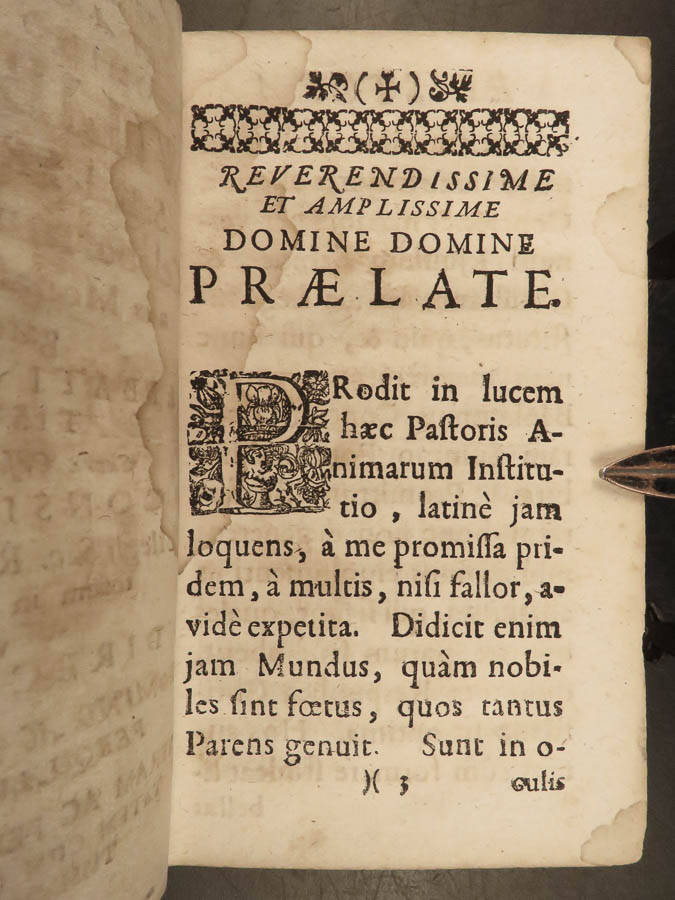 (✠)
REVERENDISSIME
ET AMPLISSIME
DOMINE DOMINE
PRÆLATE.
PRodit in lucem
hæc Paſtoris A-
nimarum Inſtitu-
tio , latinè jam
loquens, à me promiſſa pri-
dem, à multis, niſi fallor, a-
vidè expetita. Didicit enim
jam Mundus, quàm nobi-
les ſint fœtus, quos tantus
Parens genuit. Sunt in o-
)( 3 culis